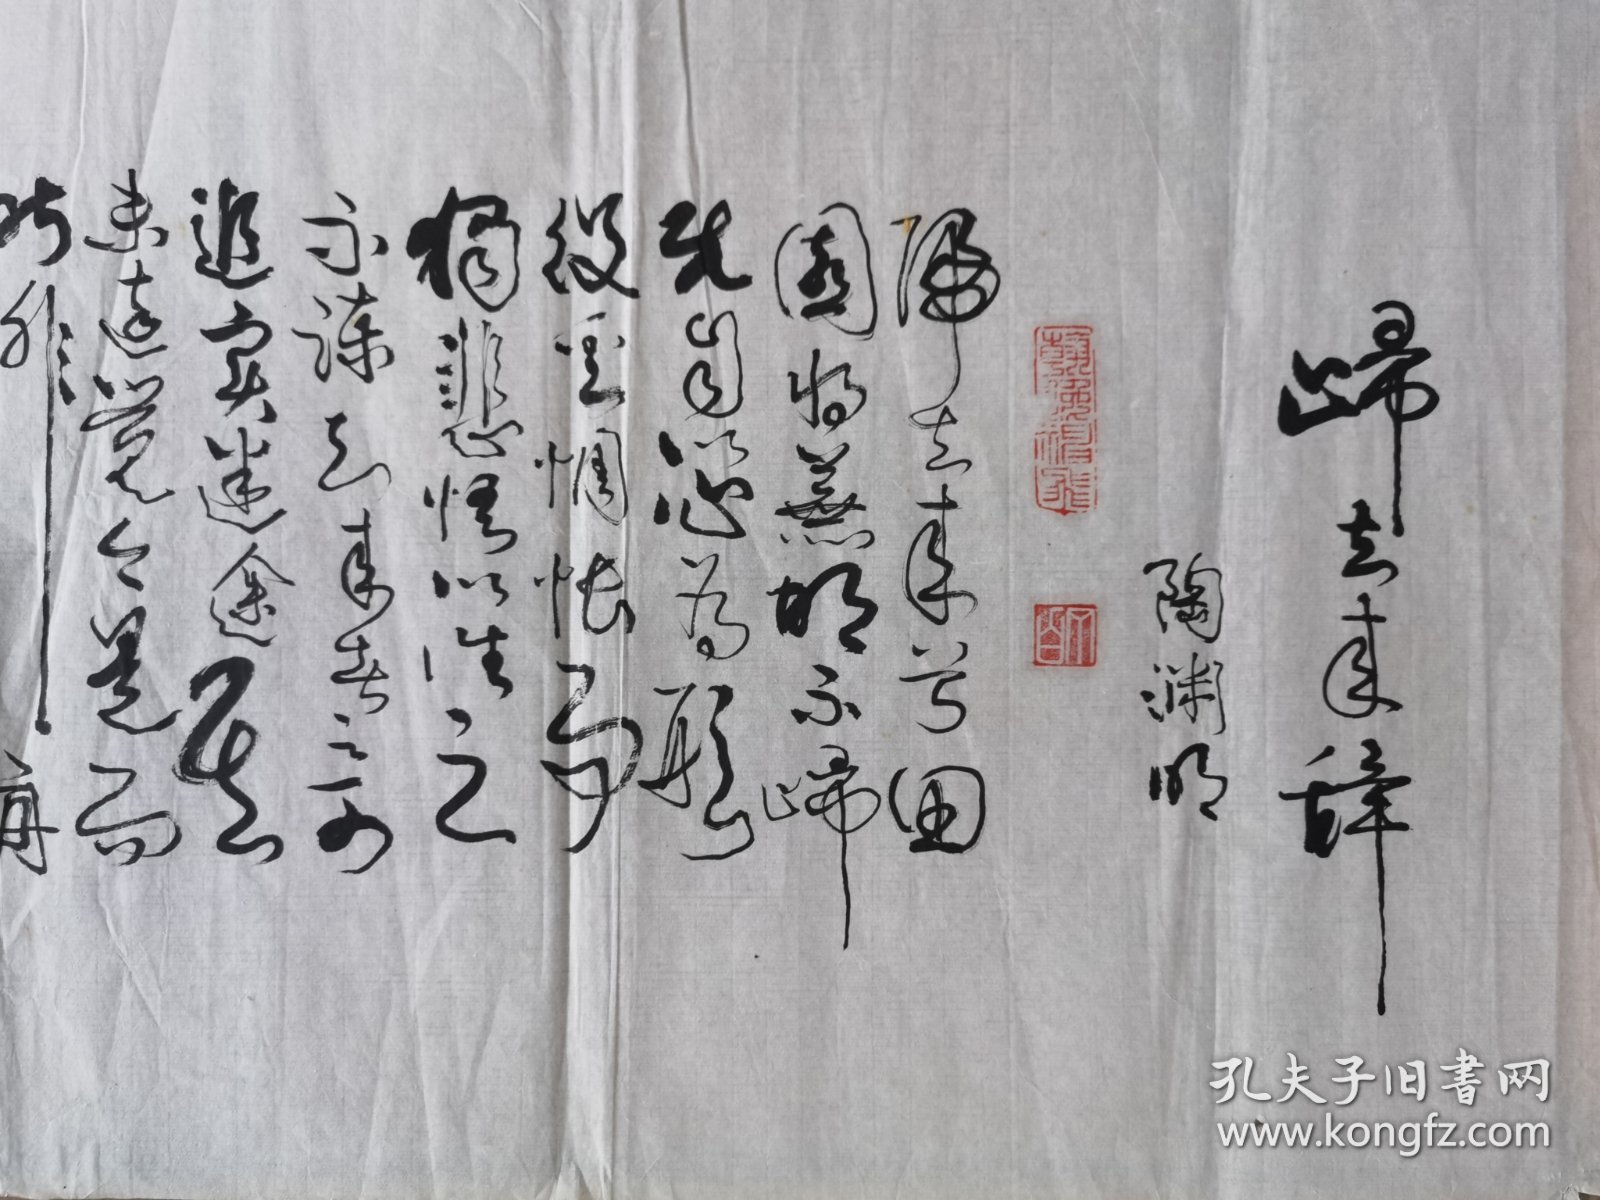 歸去来辞
陶渊明
歸去来兮田
園將蕪胡不歸
既自以心為形
役奚惆悵而
獨悲悟以往之
不諫知来者之可
追實迷途其
未遠覺今是而
昨非舟
孔夫子旧书网
www.kongfz.com